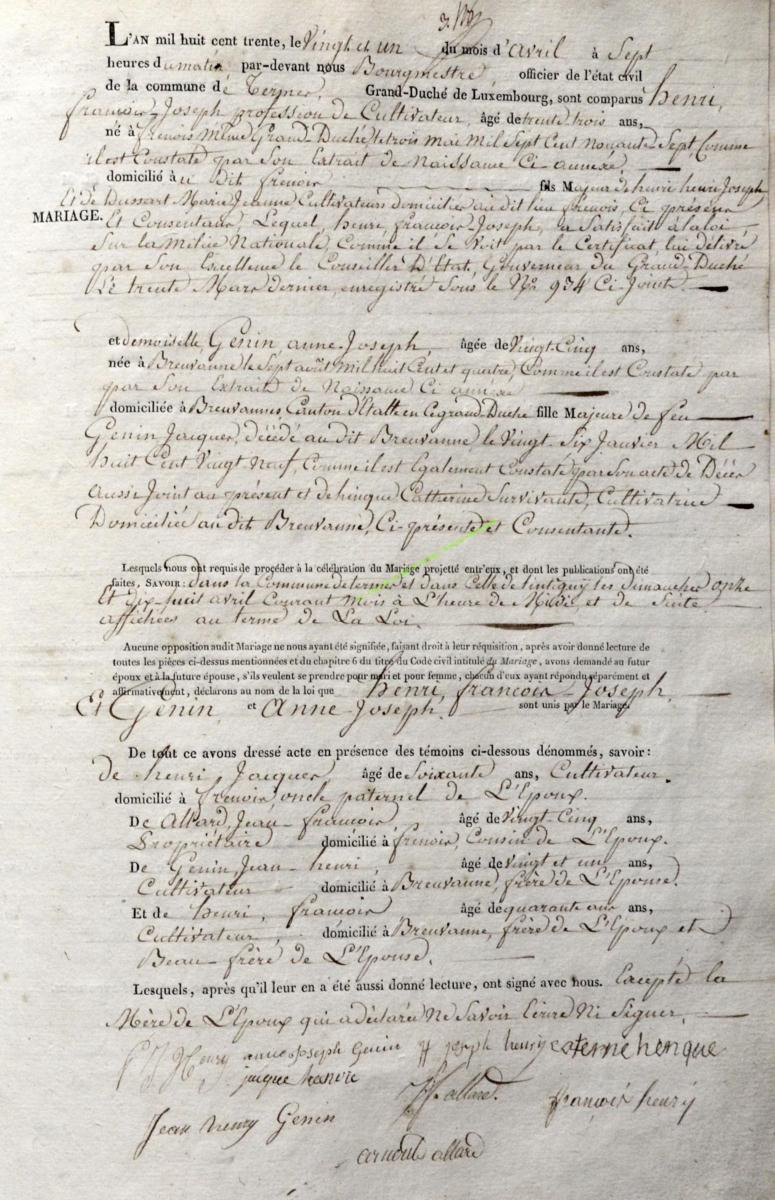 L'AN mil huit cent trente, le Vingt et un du mois d'avril à Sept
heures du matin par-devant nous Bourgmestre, officier de l'état civil
de la commune de Termes, Grand-Duché de Luxembourg, sont comparus henri,
francois-Joseph profession de Cultivateur, âgé de trente trois ans,
né à frenois même Grand-Duché le trois mai mil Sept Cent nonante-Sept Comme
il est Constaté par Son Extrait de Naissance Ci-annexé,
domicilié au dit frenois fils Majeur de henri henri Joseph
Et de Dussart Marie Jeanne Cultivateurs domiciliés au dit lieu frenois, Ci présens
MARIAGE.
Et Consentans, Lequel, henri, francois-Joseph, a Satisfait à la loi
Sur la Milice Nationale, Comme il Se Voit par le Certificat lui délivré
par Son Excellence le Conseiller D'Etat, Gouverneur du Grand-Duché
Le trente Mars dernier, enregistré Sous le No. 934 Ci-Joint.
et demoiselle Genin anne-Joseph, âgée de Vingt-Cinq ans,
née à Breuvanne le Sept août mil huit Cent et quatre, Comme il est Constaté par
par Son Extrait de Naissance Ci annéxé
domiciliée à Breuvannes, Canton d'Etalle en Ce grand-Duché fille Majeure de feu
Genin Jacques, décédé au dit Breuvanne, le Vingt-Six Janvier Mil
huit Cent Vingt Neuf, Comme il est Egalement Constaté par Son acte de Décès
aussi Joint au présent et de hinque Catherine Survivante, Cultivatrice
Domiciliée au dit Breuvanne, Ci-présente et Consentante.
Lesquels nous ont requis de procéder à la célébration du Mariage projetté entr'eux, et dont les publications ont été
faites, SAVOIR: dans la Commune de termes et dans Celle de tintigny les dimanches onze
Et dix-huit avril Courant mois à L'heure de Midi, et de Suite
affichées au terme de La Loi.
Aucune opposition audit Mariage ne nous ayant été signifiée, faisant droit à leur réquisition, après avoir donné lecture de
toutes les pièces ci-dessus mentionnées et du chapitre 6 du titre du Code civil intitulé du Mariage, avons demandé au futur
époux et à la future épouse, s'ils veulent se prendre pour mari et pour femme, chacun d'eux ayant répondu séparément et
affirmativement, déclarons au nom de la loi que henri, francois-Joseph,
Et Genin, et Anne-Joseph, sont unis par le Mariage.
De tout ce avons dressé acte en présence des témoins ci-dessous dénommés, savoir:
de henri, Jacques, âgé de Soixante ans, Cultivateur.
domicilié à frenois, oncle paternel de L'Epoux.
De Allard, Jean-francois âgé de Vingt-Cinq ans,
Propriétaire domicilié à frenois, Cousin de L'Epoux.
De Genin, Jean-henri, âgé de vingt et un ans,
Cultivateur domicilié à Breuvanne, frère de L'Epouse.
Et de henri, francois âgé de quarante ans,
Cultivateur, domicilié à Breuvanne, frère de L'Epoux et
Beau-frère de L'Epouse.
Lesquels, après qu'il leur en a été aussi donné lecture, ont signé avec nous. Excepté la
Mère de L'Epoux qui a déclarée Ne Savoir Ecrire Ni Signer.
f J Henry anne joseph Genin H joseph henry caterne henque
jacque henrie
Jean henry Genin J f allard. françois henry
arnould allard